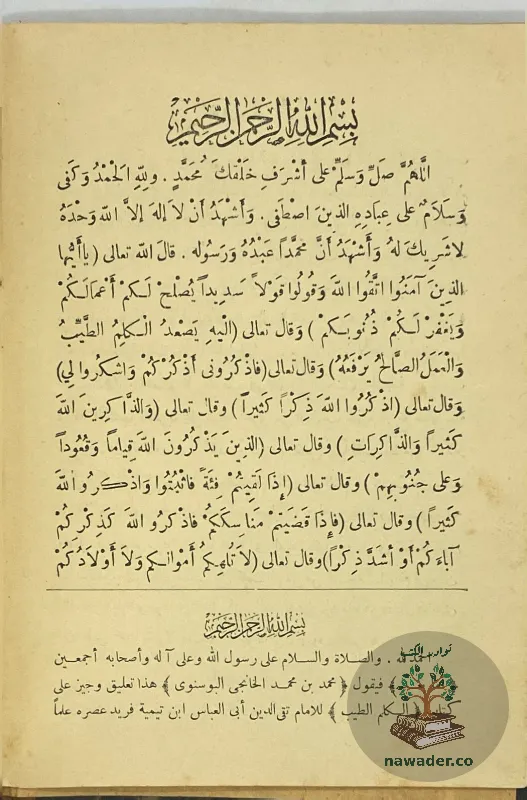 بِسْمِ اللهِ الرَّحْمَنِ الرَّحِيْمِ
اللَّهُمَّ صَلِّ وَسَلِّمْ عَلَى أَشْرَفِ خَلْقِكَ مُحَمَّدٍ . وَلِلّٰهِ الْحَمْدُ وَكَفَى
وَسَلَامٌ عَلَى عِبَادِهِ الذينَ اصْطَفَى . وَأَشْهَدُ أَنْ لاَ إِلهَ إِلاَّ اللهُ وَحْدَهُ
لاَشَرِيكَ لَهُ وَأَشْهَدُ أَنَّ مُحَمَّداً عَبْدُهُ وَرَسُوله . قالَ اللهُ تعالى ( يَاأَيُّها
الذِينَ آمَنُوا اتَّقُوا اللهَ وَقُولُوا قَوْلاً سَدِيداً يُصْلِحْ لَكمْ أَعْمَالَكُمْ
وَيَغْفِرْ لَكُمْ ذُنُوبَكمْ ) وَقال تعالى (الَيْهِ يَصْعَدُ الْكلِمُ الطَّيِّبُ
وَالْعَمَلُ الصَّالحُ يَرْفَعُهُ) وقال تعالى (فاذْكرُونى أَذْكُرْكُمْ وَاشكرُوا لِي)
وَقال تعالى (اذْ كُرُوا اللهَ ذِكْرًا كَثيراً) وقال تعالى (وَالذَّا كِرينَ اللهَ
كَثيراً وَالذَّا كِرَاتِ ) وقال تعالى (الذِينَ يَذْكُرُونَ اللهَ قِيَاماً وَقُعُوداً
وَعلى جُنُوبِهِمْ ) وقال تعالى (إِذَا لَقِيتُمْ فِئَةً فاثْبُتُوا وَاذْكرُوا اللهَ
كَثيراً ) وقال تعالى (فإِذَا قَضَيْتمْ مَنَاسِكَكمْ فاذْكرُو اللهَ كَذِكْرِكُمْ
آبَاءَكُمْ أَوْ أَشَدَّ ذِكْراً) وقال تعالى (لاَ تُلْهِكمْ أَمْوَالكم وَلاَ أَوْلاَدُكُمْ
بِسْمِ اللهِ الرَّحْمَنِ الرَّحِيْمِ
الحمد لله . والصلاة والسلام على رسول الله وعلى آله وأصحابه أجمعين
فيقول ﴿ محمد بن محمد الخانجى البوسنوى ﴾ هذا تعليق وجيز على
كتاب ﴿ الكلم الطيب ﴾ للامام تقى الدين أبى العباس ابن تيمية فريد عصره علماً
نوادر الكتب
nawader.co